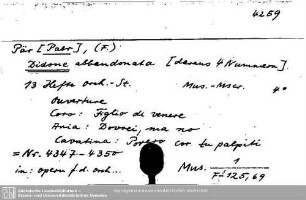 4259
Pär [Paer], (F.)
Didone abbandonata [daraus 4 Nummern].
13 Hefte orch.-St. Mus.-Mscr. 4°
Ouverture
Coro: Figlio di venere
Aria: Dovrei, ma no
Cavatina: Povero cor tu palpiti
= Nr. 4347-4350
in: opern f. d. orch... Mus. 1
F 125,69
Sächsische Landesbibliothek -
Staats- und Universitätsbibliothek Dresden